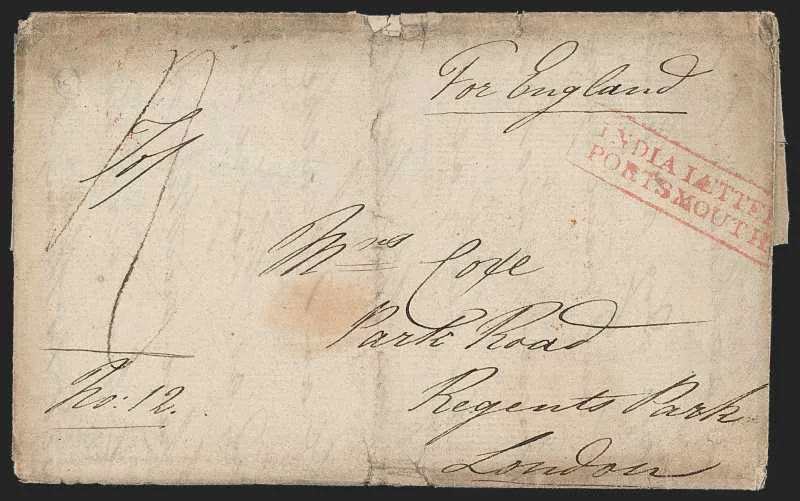 For England
INDIA LETTER
PORTSMOUTH
To/
Mrs Coxe
Park Road
Regents Park
London
No: 12.